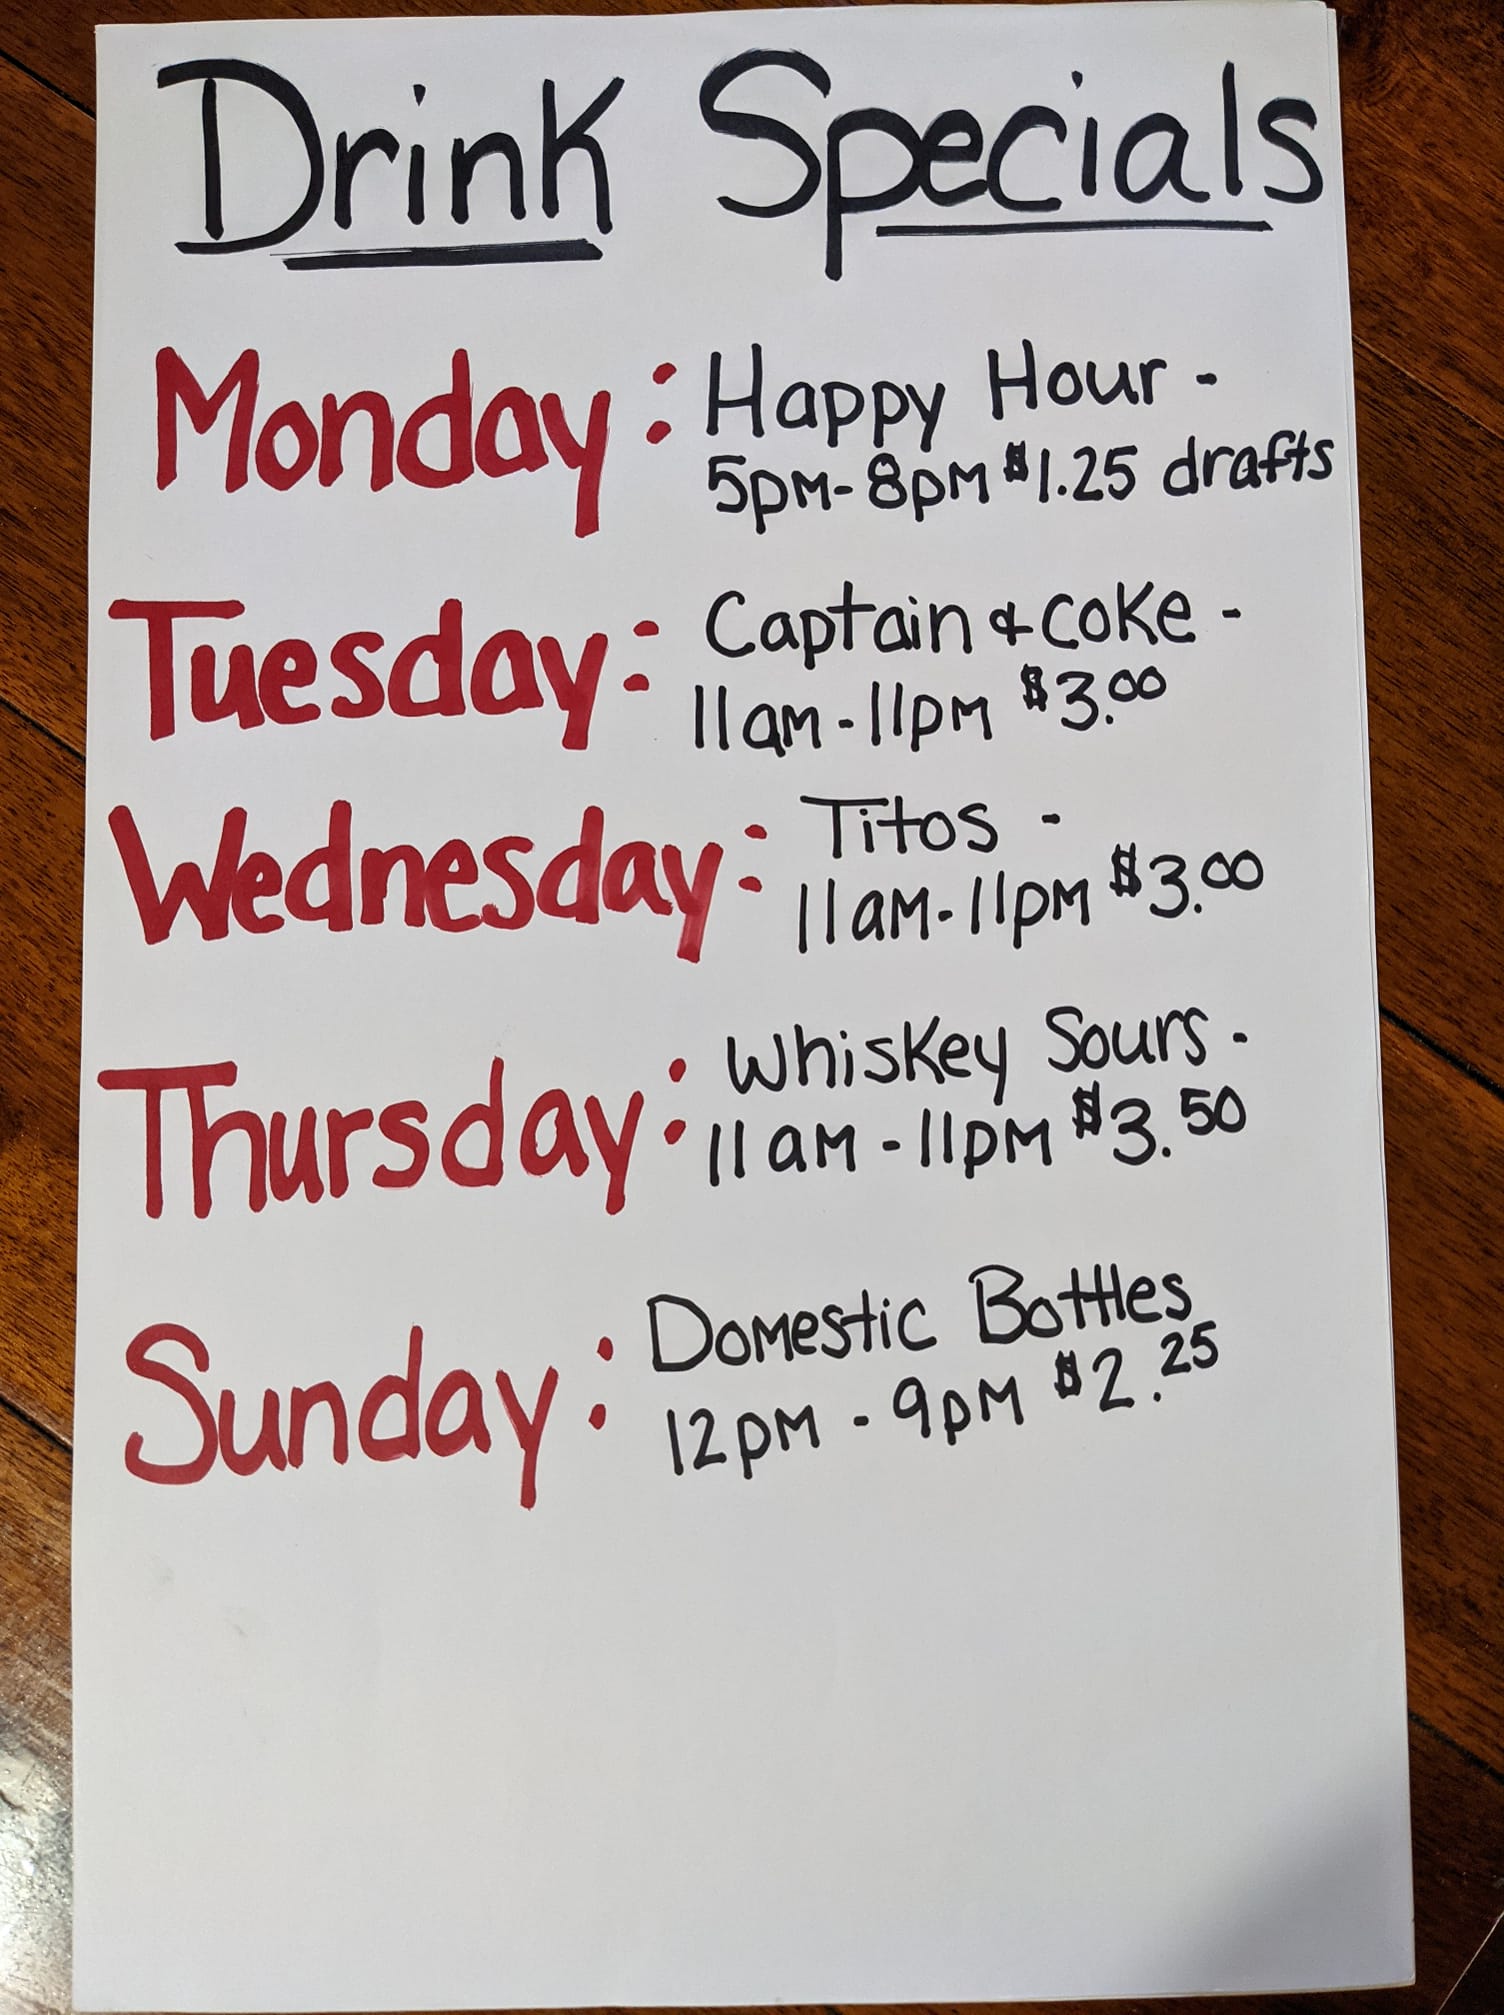 Drink Specials
Monday: Happy Hour -
5pm-8pm $1.25 drafts
Tuesday: Captain & Coke -
11am-11pm $3.00
Wednesday: Titos -
11am-11pm $3.00
Thursday: Whiskey Sours -
11am-11pm $3.50
Sunday: Domestic Bottles
12pm-9pm $2.25